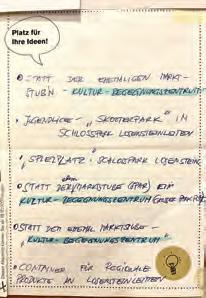 Platz für
Ihre Ideen!
• STATT DER EHEMALIGEN MARKT-
STUB'N - KULTUR-BEGEGNUNGSZENTRUM
• JUGENDLICHE - "SKATERPARK" IM
SCHLOSSPARK LOSENSTEINLEITEN
• "SPIELPLATZ" SCHLOSSPARK LOSENSTEIN.
• STATT DER MARKTSTUBE (SPAR) EIN
KULTUR-BEGEGNUNGSZENTRUM
• STATT DER EHEMAL. MARKTSTUBE -
"KULTUR-BEGEGNUNGSZENTRUM"
• CONTAINER FÜR REGIONALE
PRODUKTE IN LOSENSTEINLEITEN